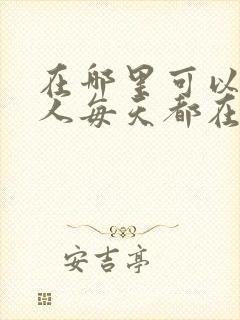 在哪里可以
人每天都在
安吉亭